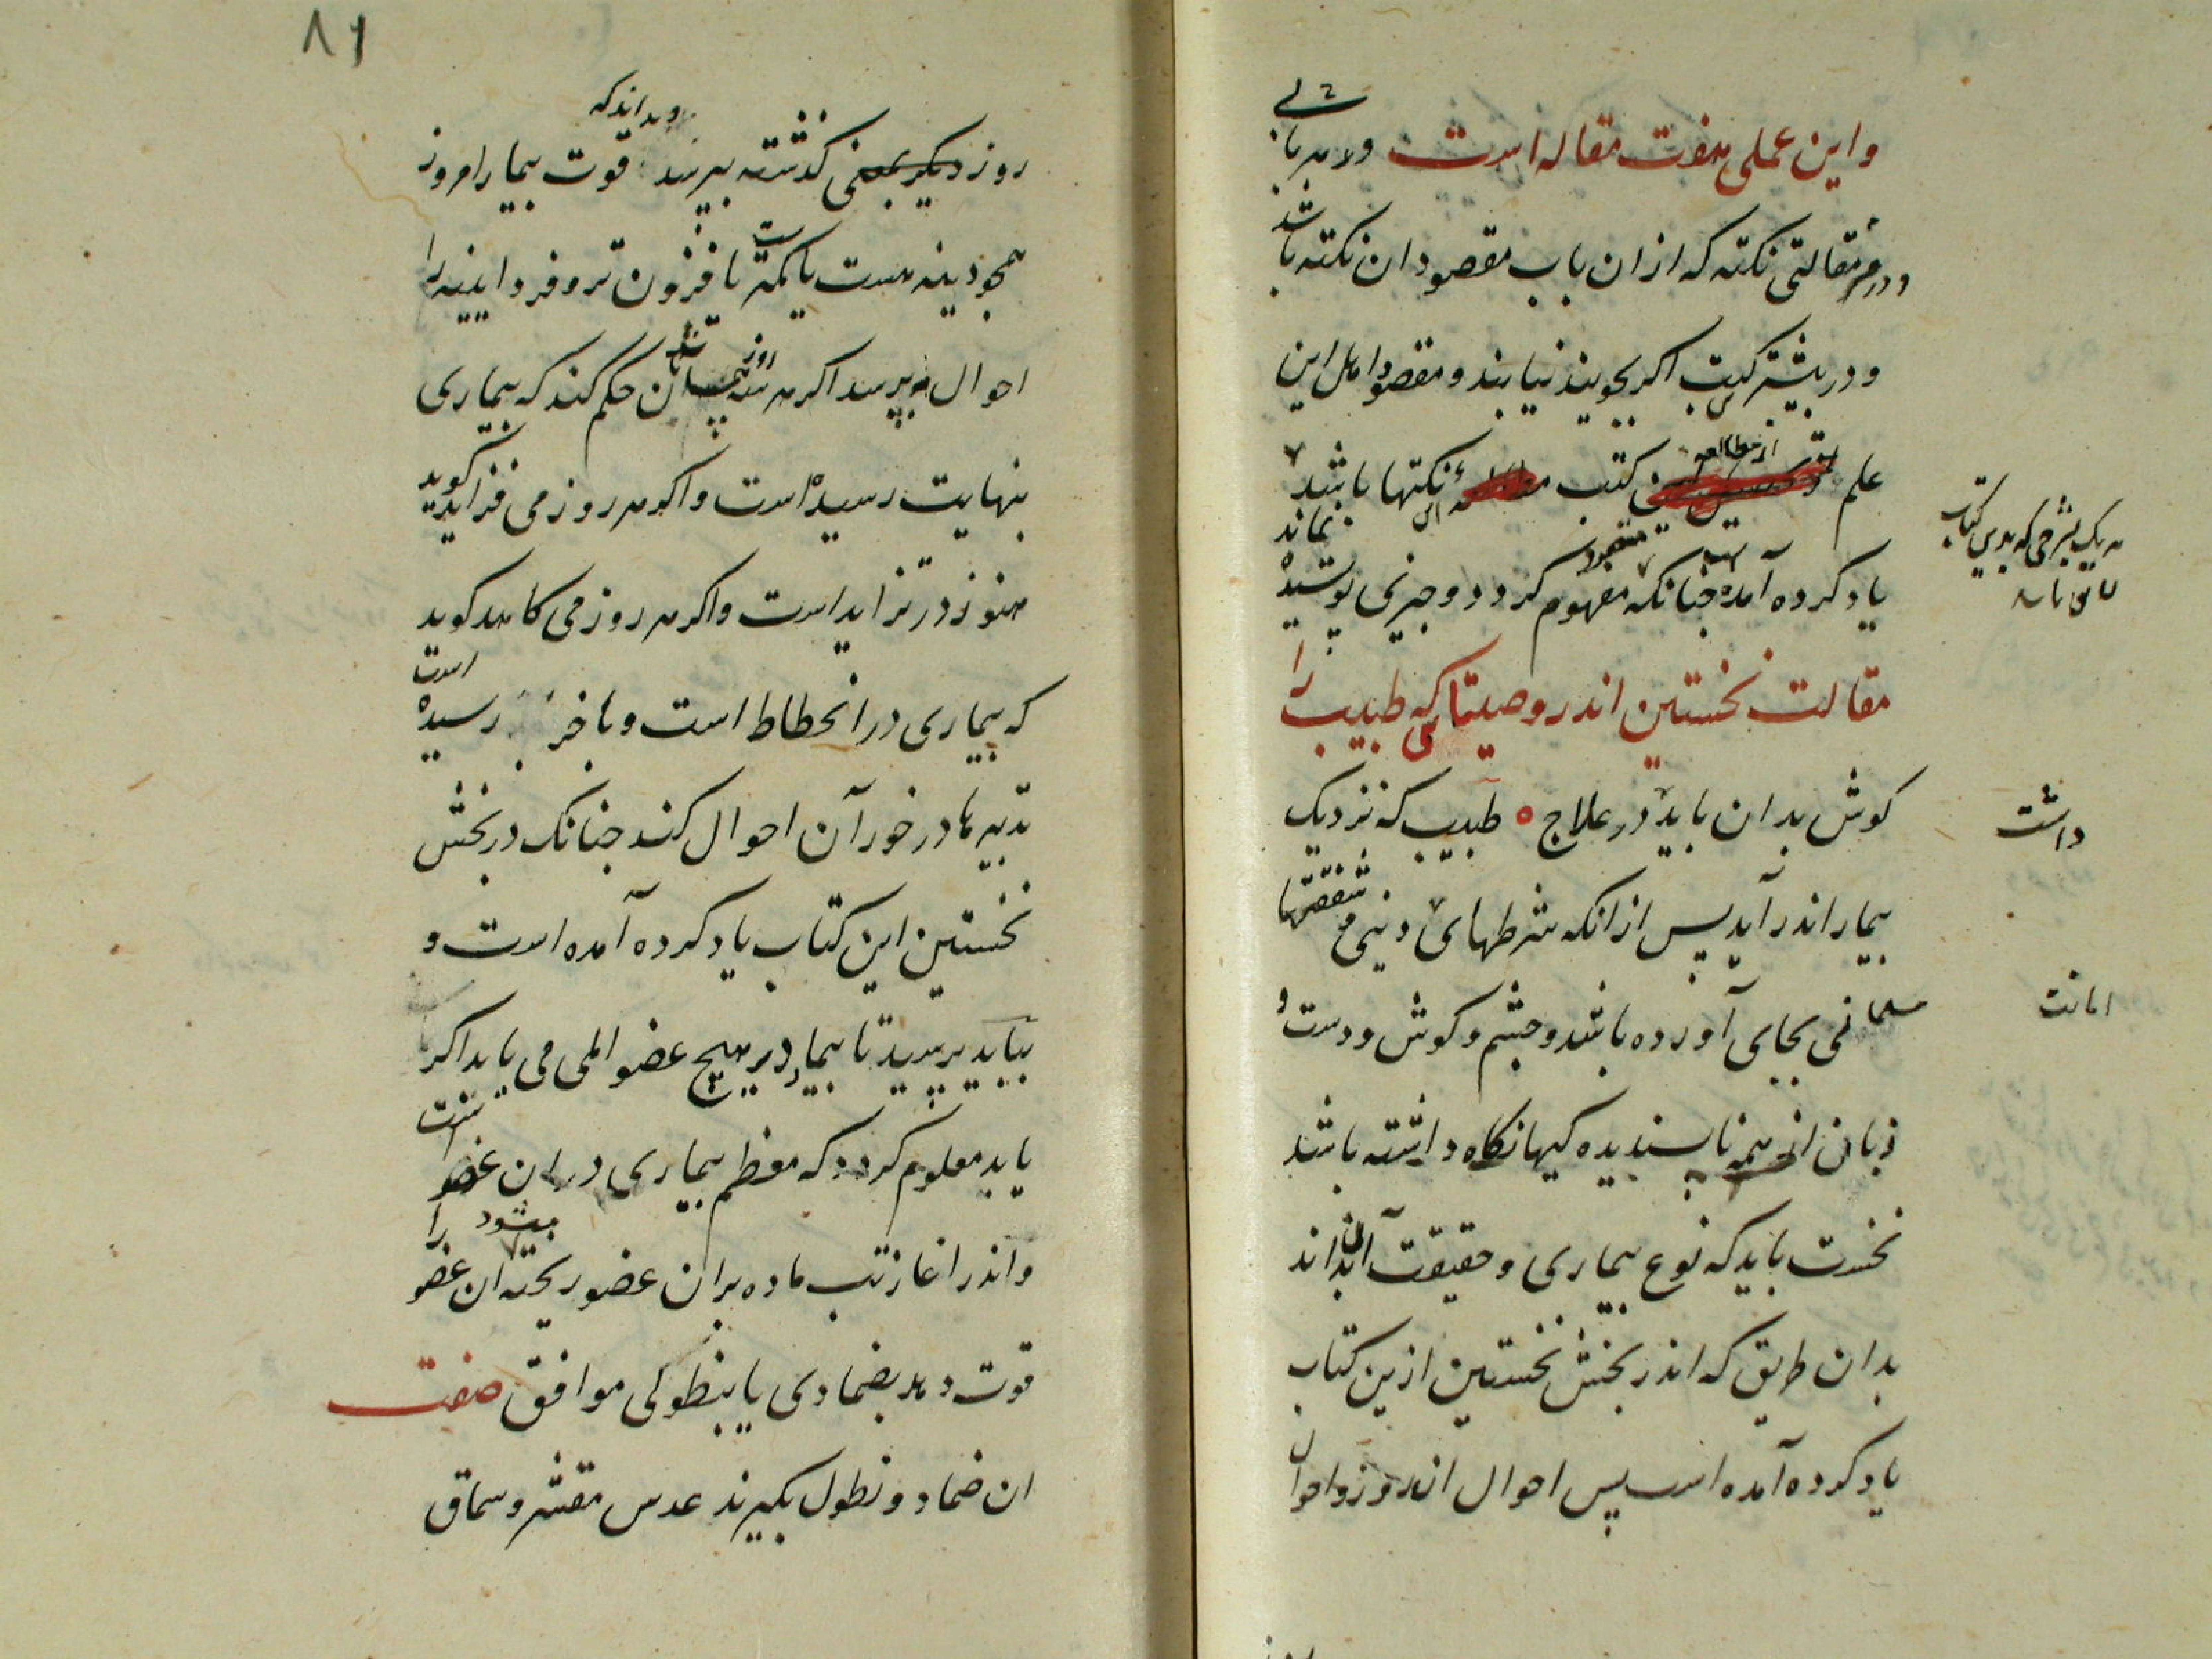 و این عملی هفت مقاله است و در هر بابی
و در هر مقالتی نکته که از ان باب مقصود ان نکته باشد
و در بیشتر کتب اکر بجویند نیابند و مقصود اهل این
علم از مطالعه کتب این نکتها باشد
یاد کرده آمده است جنانکه مفهوم کردد و جیزی بوشیده نماند
مقالت نخستین اندر وصیتهائی که طبیب را
کوش بدان باید داشت در علاج طبیب که نزدیک
بیمار اندر آید بس از انکه شرطهای دینی و شفقتها
مسلمانی بجای آورده باشد و جشم و کوش و دست و
زبان از همه ناپسندیده کیها نکاه داشته باشد
نخست باید که نوع بیماری و حقیقت آن بداند
بدان طریق که اندر بخش نخستین ازین کتاب
یاد کرده آمده است پس احوال اندروز و احوال
داشت
امانت
۸۶
روز دیکر یعنی کذشته بپرسد و بداند که قوت بیمار امروز
همجو دینه هست یا کمتر یا فزون تر و فردا اینه را
احوال بپرسد اکر هر سه روز یکسان باشد حکم کند که بیماری
بنهایت رسیده است و اکر هر روز می فزاید کوید
هنوز در تزاید است و اکر هر روز می کاهد کوید
که بیماری در انحطاط است و باخر رسیده است
تدبیرها در خور آن احوال کند جنانک در بخش
نخستین این کتاب یاد کرده آمده است و
بباید پرسید تا بیمار در هیچ عضو المی می یابد اکر
یابد معلوم کردد که معظم بیماری در ان عضو است
و اندر اغاز تب ماده بران عضو ریخته میشود ان عضو را
قوت دهد بضمادی یا بنطولی موافق صفت
ان ضماد و نطول بکیرند عدس مقشر و سماق